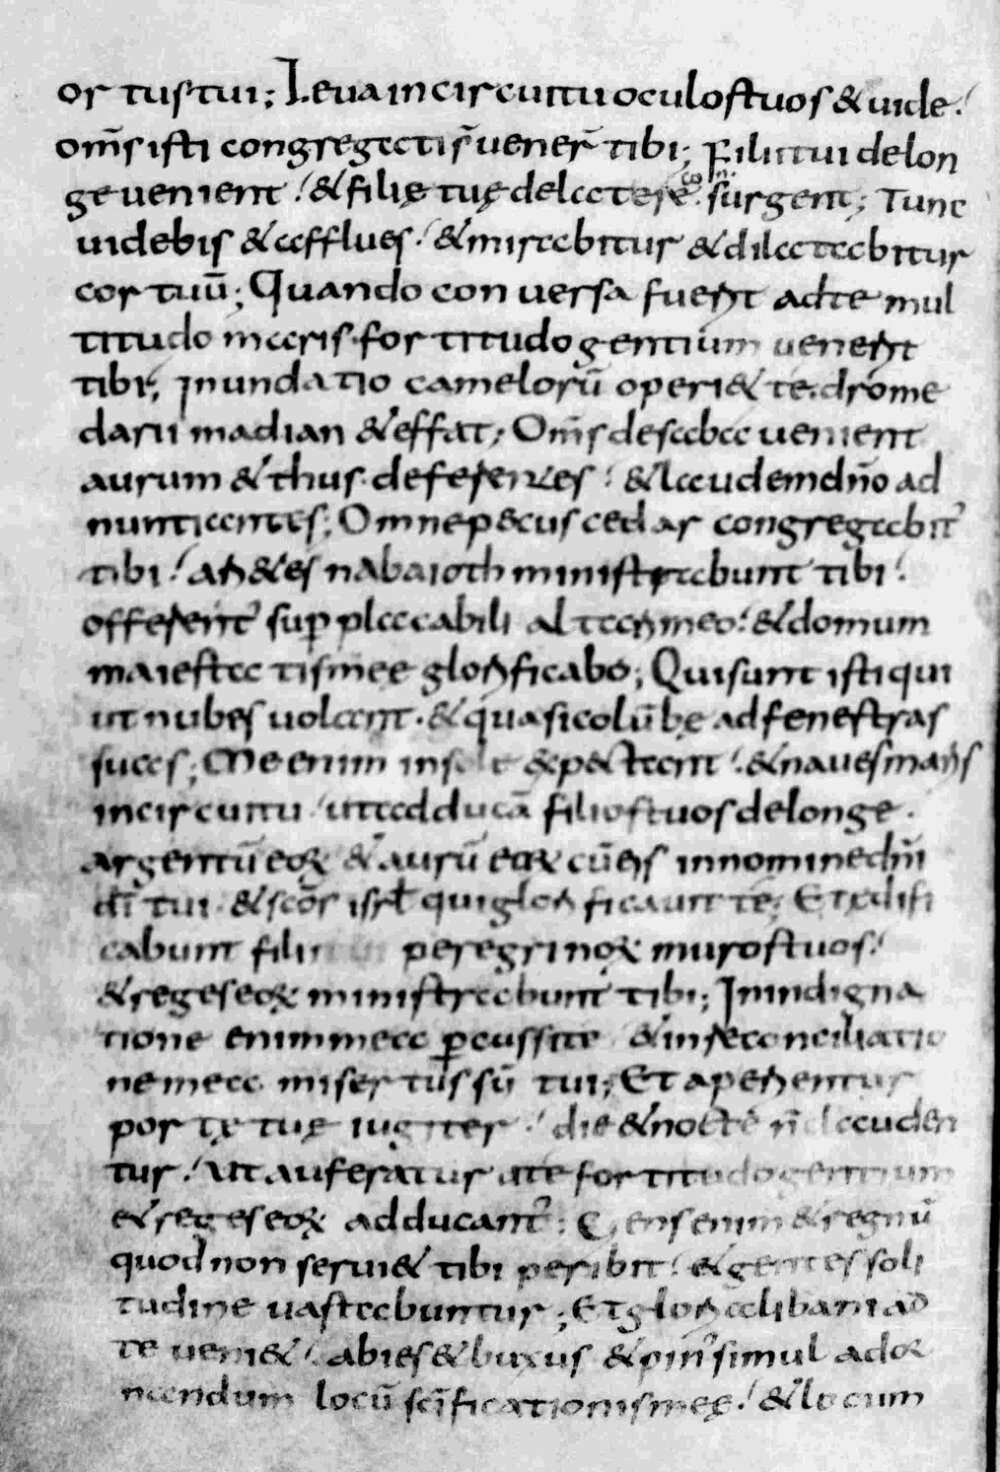 ortus tui; Leva in circuitu oculos tuos & uide.
om̅s isti congregati s̅ uener̅ tibi; Filii tui de lon
ge uenient. & filię tuę de latere surgent; Tunc
uidebis & afflues. & mirabitur & dilatabitur
cor tuū; Quando conuersa fuerit ad te mul
titudo maris. fortitudo gentium uenerit
tibi; Inundatio camelorū operi& te. drome
darii madian & effa; Om̅s de saba uenient
aurum & thus deferentes. & laudem dn̅o ad
nuntiantes; Omne pecus cedar congregabit᾽
tibi. ari&es nabaioth ministrabunt tibi.
offerent᾽ suꝑ placabili altari meo. & domum
maiestatis meę glorificabo; Qui sunt isti qui
ut nubes uolant. & quasi colūbę ad fenestras
suas; Me enim insulę expectant. & naues maris
in circuitu ut adducā filios tuos de longe.
argentū eoꝝ & aurū eoꝝ cū eis in nomine dn̅i
dī tui. & sc̅o isrł qui glorificauit te; Et ędifi
cabunt filii peregrinoꝝ muros tuos.
& reges eoꝝ ministrabunt tibi; In indigna
tione enim mea ꝑcussi te & in reconciliatio
ne mea misertus sū tui; Et aperientur
portę tuę iugiter. die & nocte n̅ clauden
tur. Ut auferatur ad te fortitudo gentium
& reges eoꝝ adducant᾽; Gens enim & regnū
quod non serui& tibi peribit. & gentes soli
tudine uastabuntur; Et gloria libani ad
te ueni&. abies & buxus & pin᾽ simul ad or
nandum locū sc̅ificationis meę. & locum